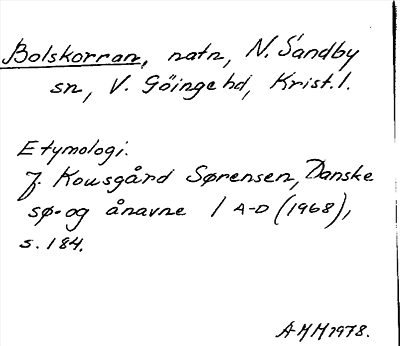 Bolskorran, natn, N. Sandby
sn, V. Göinge hd, Krist. l.
Etymologi.
Jf. Kousgård Sørensen, Danske
sø- og ånavne 1 A-D (1968),
s. 184.
AMM 1978.